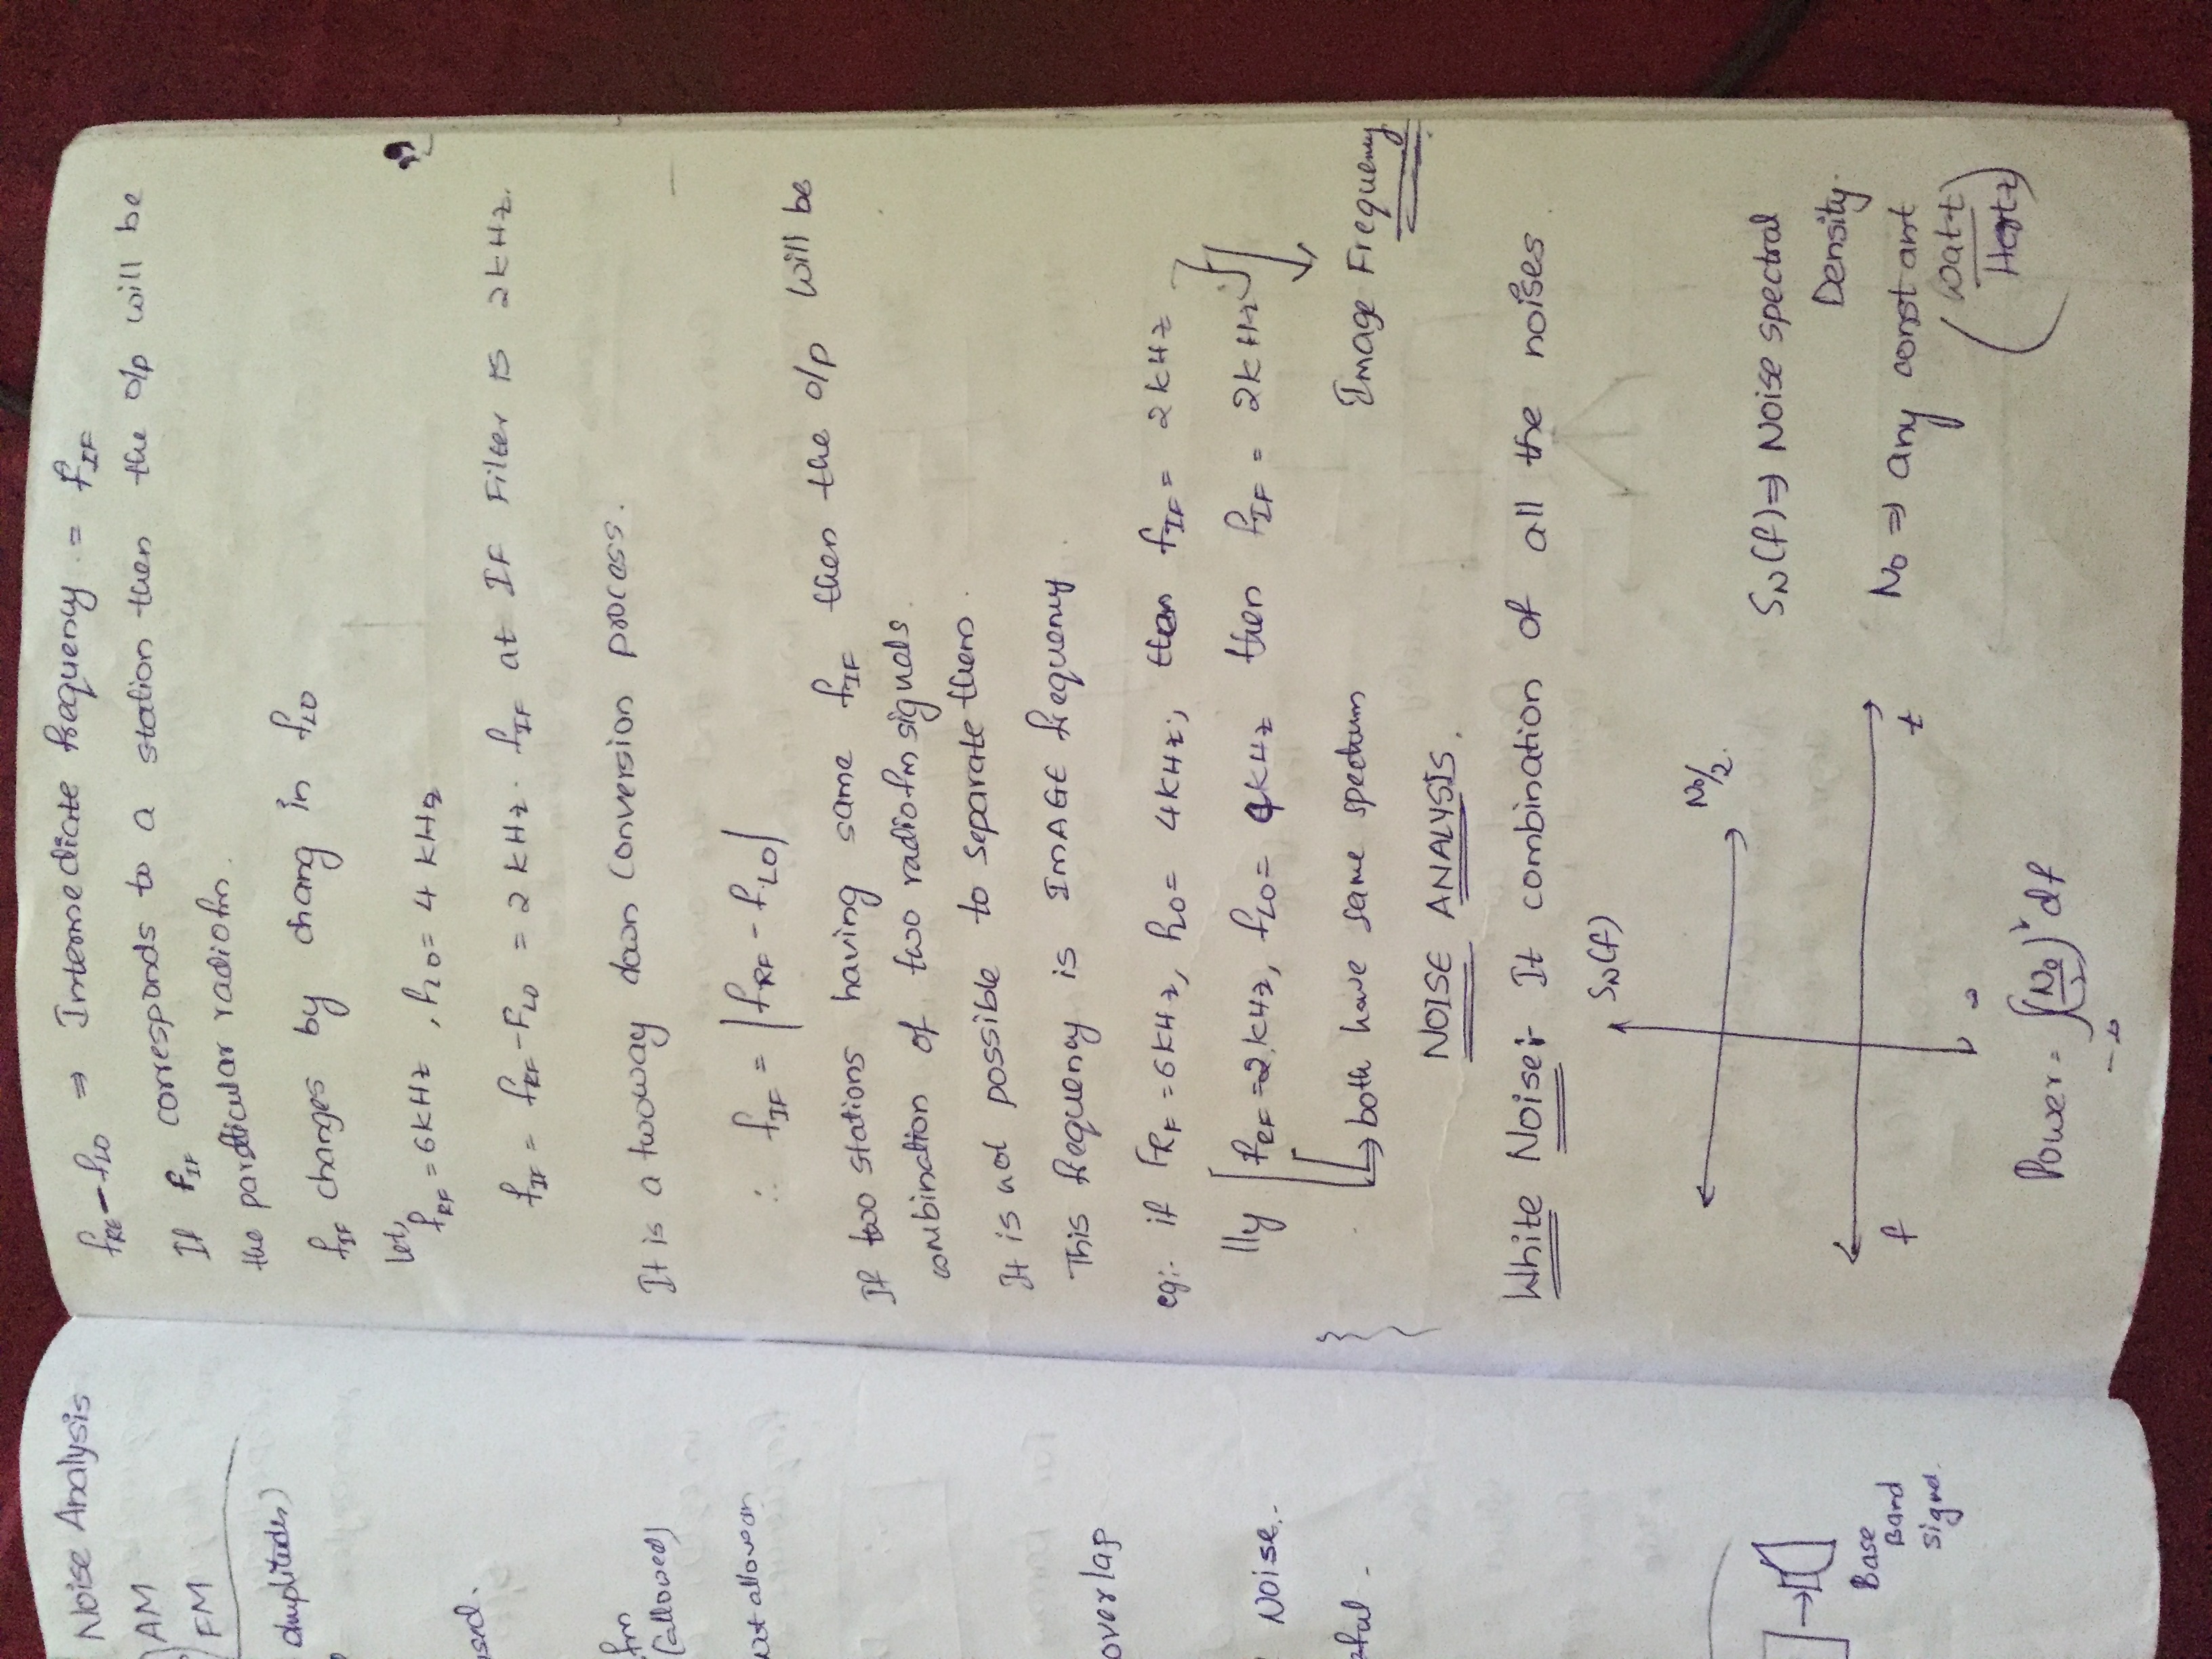 Noise Analysis
AM
FM
amplitudes)
used.
fm
(allowed)
not allow an
overlap
Noise.-
Base
Band
Signal.
fRF - fLO ⇒ Intermediate frequency. = fIF
If FIF corresponds to a station then the o/p will be
the particular radiofm.
fIF changes by chang in fLO
let,
fRF = 6kHz , fLO = 4 kHz
fIF = fRF - FLO = 2 kHz. fIF at IF Filter is 2kHz.
It is a twoway down conversion process.
∴ fIF = |fRF - fLO|
If two stations having same fIF then the o/p will be
combination of two radiofm signals.
It is not possible to separate them.
This frequency is IMAGE frequency.
eg:- if FRF = 6kHz, fLO = 4kHz; then fIF = 2kHz
lly fRF = 2kHz, fLO = 4kHz then fIF = 2kHz
both have same spectrum
Image Frequency
NOISE ANALYSIS.
White Noise:- It combination of all the noises.
SN(f)
N0/2.
f t
SN(f) ⇒ Noise spectral
Density.
N0 ⇒ any constant
(Watt/Hertz)
Power = ∫-∞^∞ (N0/2)² df